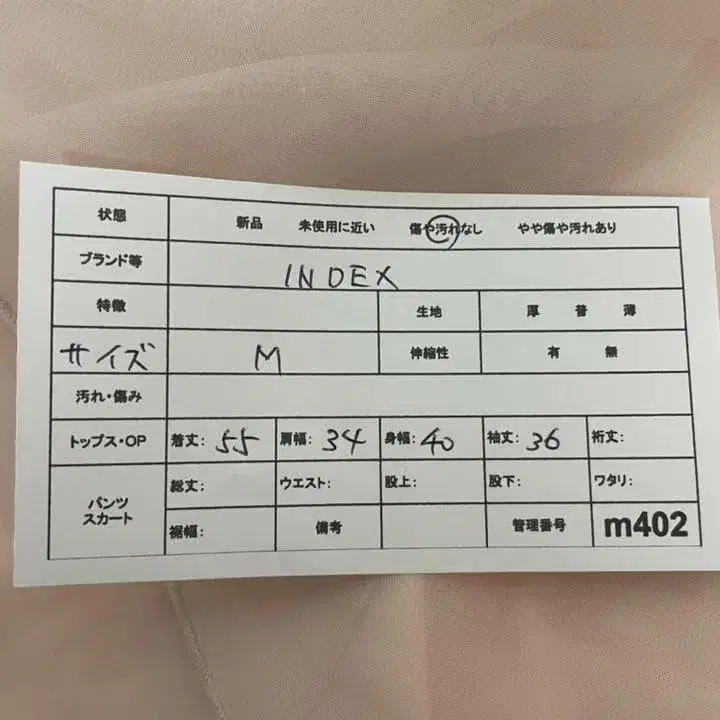 状態 新品 未使用に近い 傷や汚れなし やや傷や汚れあり
ブランド等 INDEX
特徴 生地 厚 普 薄
サイズ M 伸縮性 有 無
汚れ・傷み
トップス・OP 着丈: 55 肩幅: 34 身幅: 40 袖丈: 36 裄丈:
パンツ スカート 総丈: ウエスト: 股上: 股下: ワタリ:
裾幅: 備考 管理番号 m402